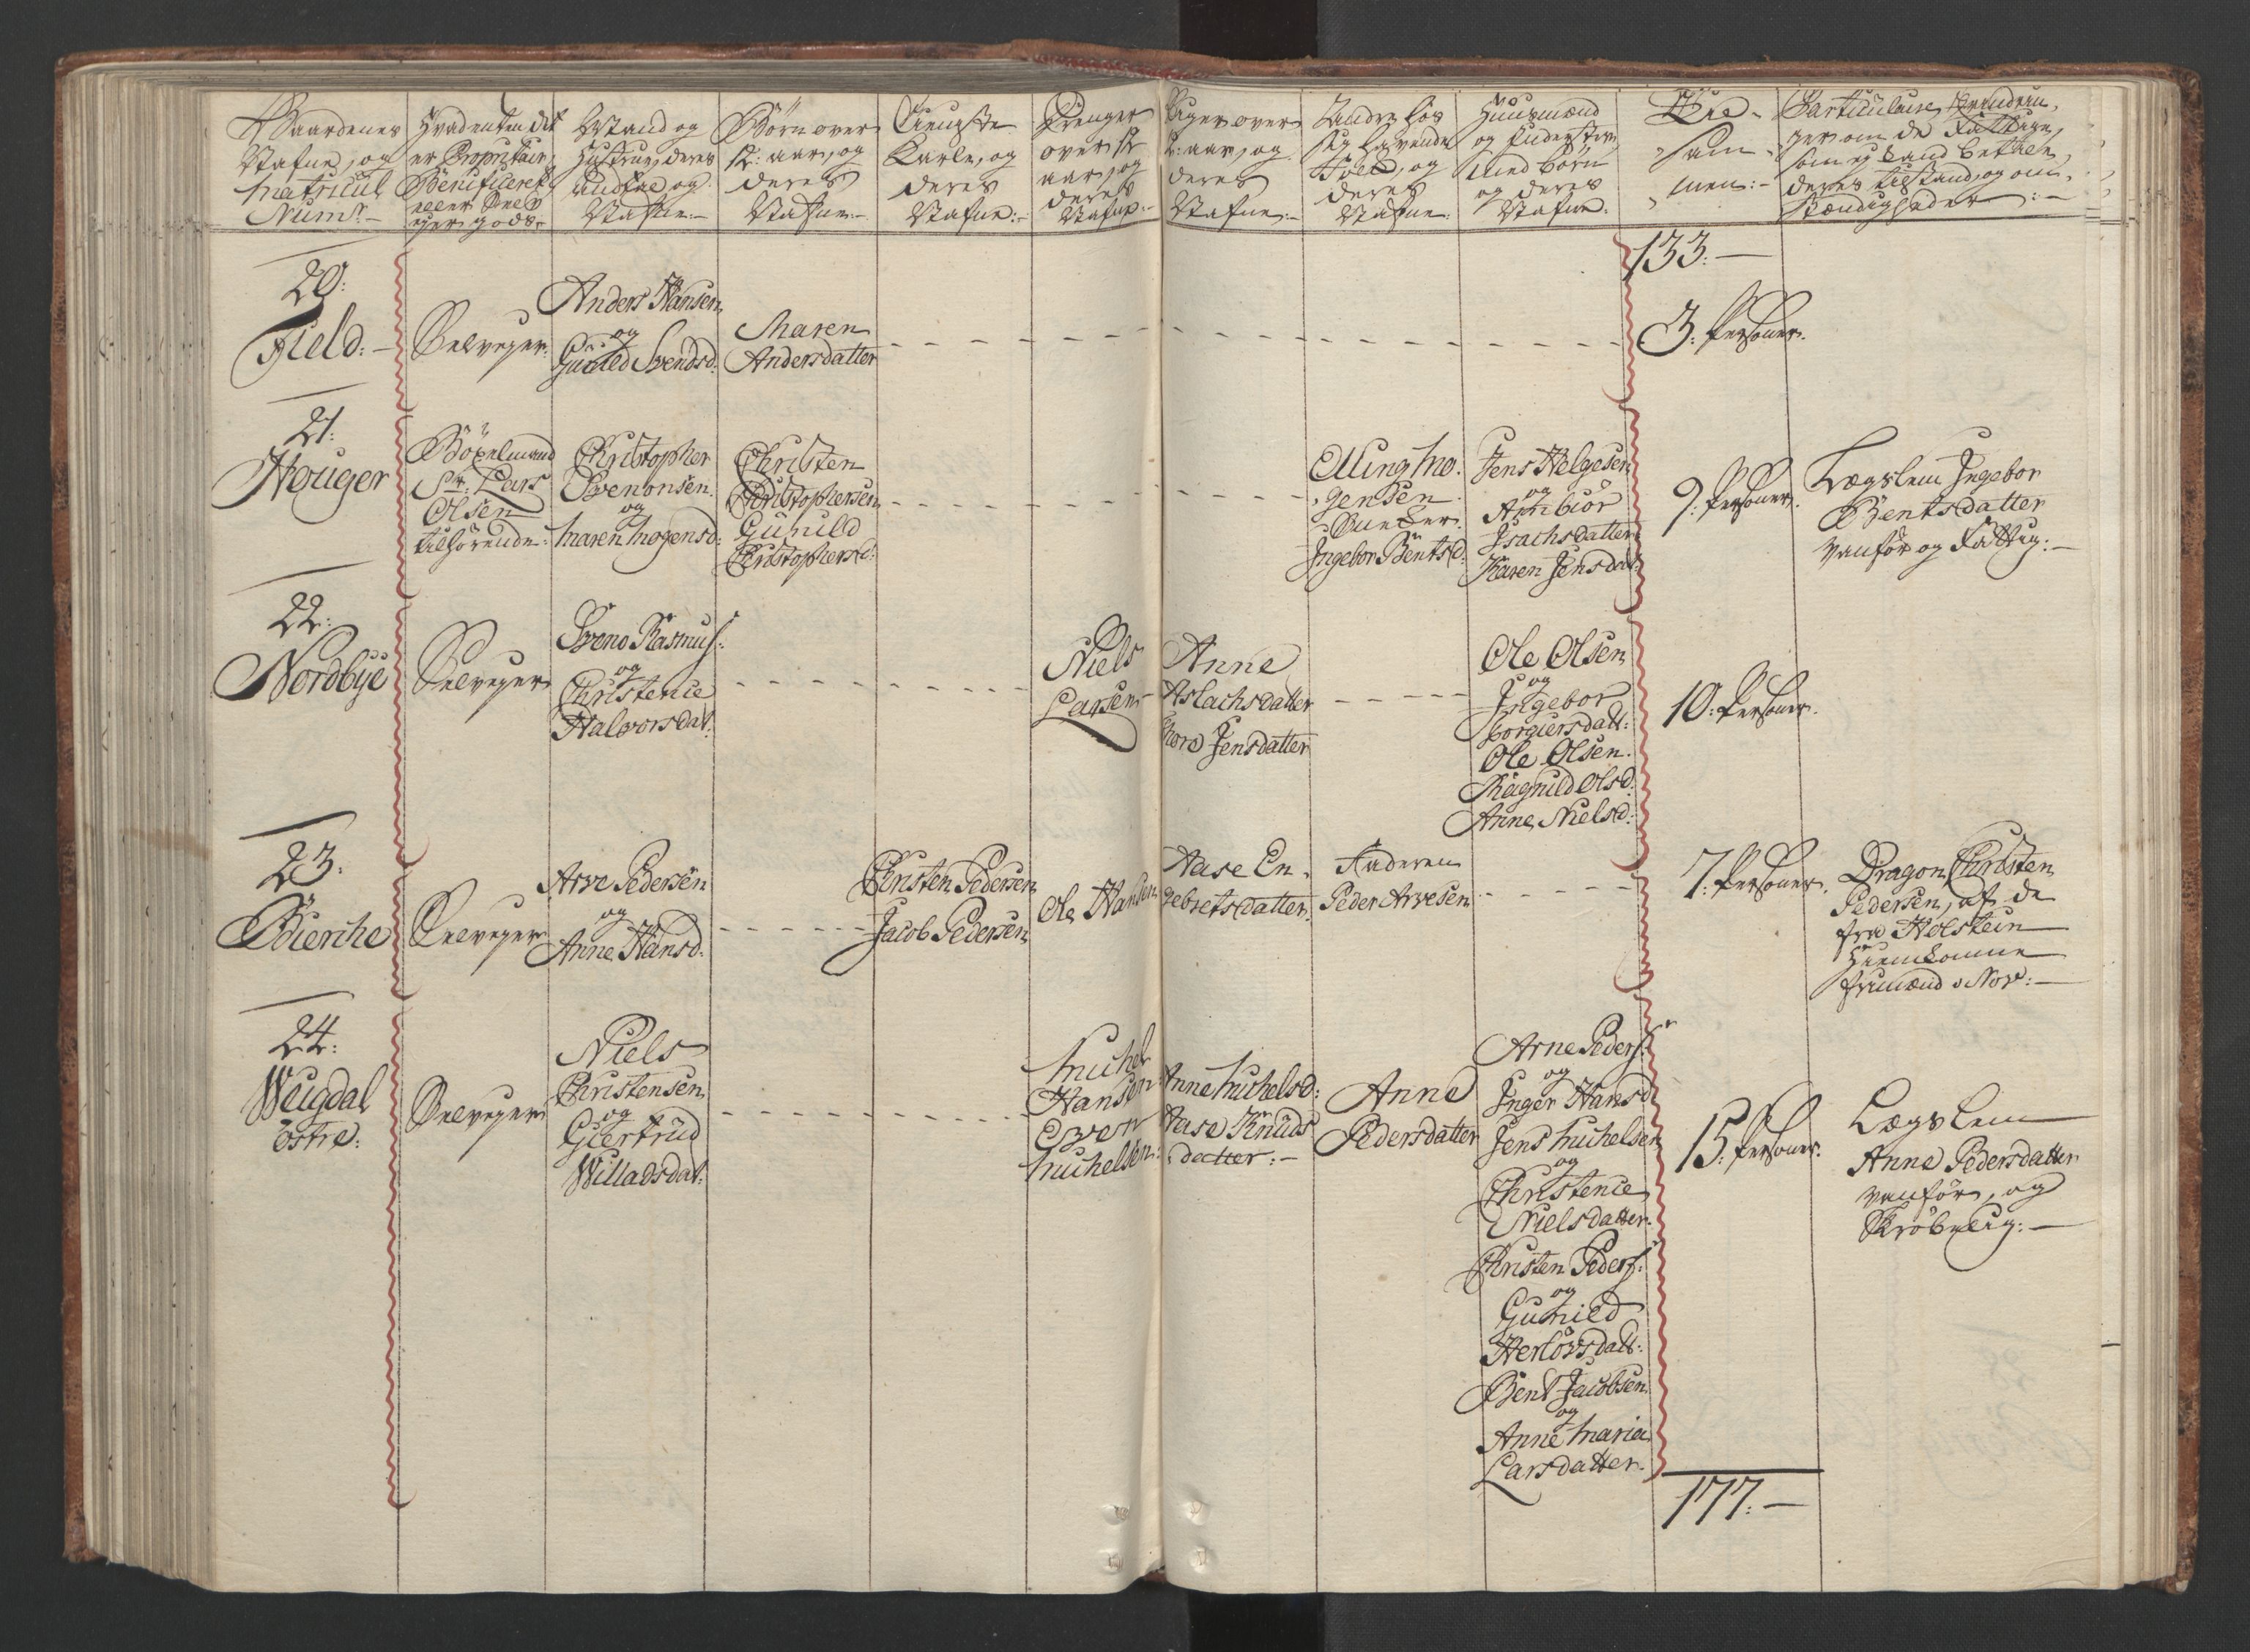 Gaardenes
Nafne, og
Matricul
Num:r
Hvad enten det
er Proprietair,
Beneficeret
eller Selv
ejer gods.
Mand og
Hustrue, deres
og
Nafne:
Børn over
12: aar, og
deres
Nafne:
Tieniste
Karle, og
deres
Nafne:
Drenger
over 12
aar, og
deres
Nafne:
Piger over
12: aar, og
deres
Nafne:
Andre hos
sig havende
Folck, og
deres
Nafne:
Huusmænd
og Inderster
med børn
og deres
Nafne:
Til-
sam-
men:
Particulaire
ger om de Fattige,
som ej kand betale,
deres tilstand, og om-
stændigheder:
133:
20:
Field:
Selvejer:
Anders Hansen
og
Gunild Svendsd:
Maren
Andersdatter
3: Persohner.
21:
Houger
Böxelmand
Sr: Lars
Olsen
tilhörende:
Christopher
Svenonsen
og
Maren Mogensd:
Christen
Christophersen
Gunild
Christophersd:
Elling Mo-
gensen
Ingebor Bentsd:
Jens Helgesen
og
Annbiör
Isachsdatter
Karen Jensdat:
9: Persohner.
Lægslem Ingebor
Bentsdatter
vanför og Fattig:
22:
Nordbye
Selvejer
Sveno Rasmus:
og
Christence
Halvorsdat:
Niels
Larsen
Anne
Aslachsdatter
Jensdatter
Ole Olsen
og
Ingebor
Torgiersdatt:
Ole Olsen.
Ragnild Olsd:
Anne Nielsd:
10: Persohner.
23:
Bierche
Selvejer
Arve Pedersen
og
Anne Hansd:
Christen Pedersen
Jacob Pedersen
Ole Hansen
Aase En-
gebretsdatter
Faderen
Peder Arvesen
7: Persohner.
Dragon Christen
Pedersen, af de
fra Holstein
Hiemkomne
24:
Weigdal
östre:
Selvejer
Niels
Christensen
og
Giertrud
Willadsdat:
Michel
Hansen
Even
Michelsen:
Anne Michelsd:
Aase Knuds
datter:
Anne
Pedersdatter
Arne Peders:
og
Inger Hansd
Jens Michelsen
og
Christence
Nielsdatter
Christen Peders:
og
Gunild
Herlövsdatt:
Bent Jacobsen
og
Anne Maria
Larsdatter.
15: Persohner.
Lægslem
Anne Pedersdatter
vanför, og
Skröbelig:
177: